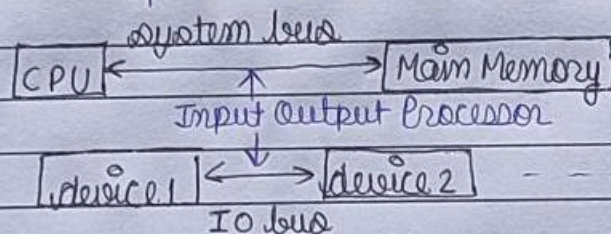 system bus
CPU Main Memory
Input Output Processor
device 1 device 2 - -
IO bus